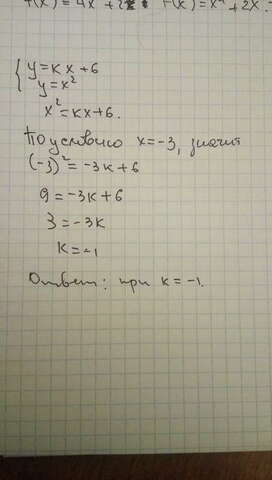 f(x) = 4x + 2
F(x) = x² + 2x.
{ y = kx + 6
y = x²
x² = kx + 6.
По условию x = -3, значит
(-3)² = -3k + 6
9 = -3k + 6
3 = -3k
k = -1
Ответ: при k = -1.